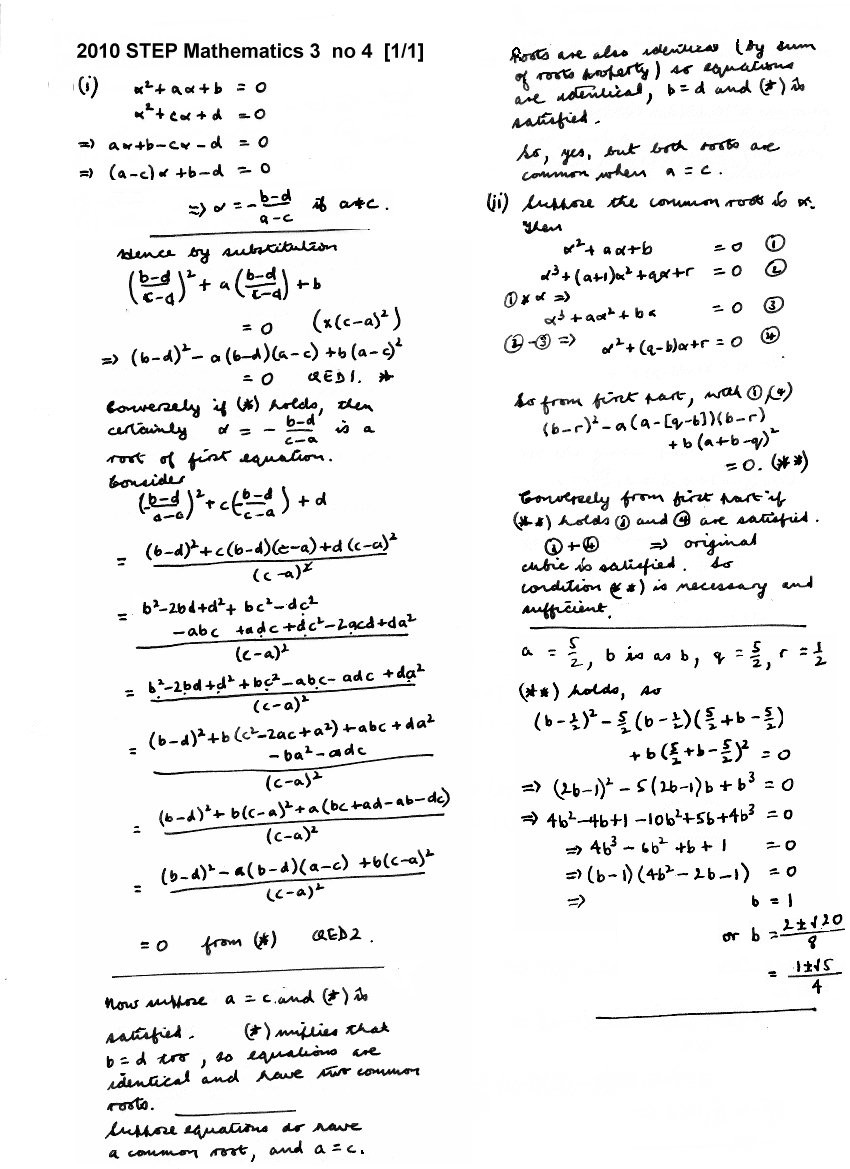 2010 STEP Mathematics 3 no 4 [1/1]
(i) α²+aα+b = 0
α²+cα+d = 0
⇒ aα+b-cα-d = 0
⇒ (a-c)α+b-d = 0
⇒ α = -(b-d)/(a-c) if a≠c.
Hence by substitution
((b-d)/(c-a))² + a((b-d)/(c-a)) + b
= 0 (×(c-a)²)
⇒ (b-d)² - a(b-d)(a-c) + b(a-c)²
= 0 QED1. *
Conversely if (*) holds, then
certainly α = -(b-d)/(c-a) is a
root of first equation.
Consider
((b-d)/(a-a))² + c((b-d)/(c-a)) + d
= ((b-d)²+c(b-d)(c-a)+d(c-a)²)/(c-a)²
= (b²-2bd+d²+bc²-dc²
-abc+adc+dc²-2acd+da²)/(c-a)²
= (b²-2bd+d²+bc²-abc-adc+da²)/(c-a)²
= ((b-d)²+b(c²-2ac+a²)+abc+da²
-ba²-adc)/(c-a)²
= ((b-d)²+b(c-a)²+a(bc+ad-ab-dc))/(c-a)²
= ((b-d)²-a(b-d)(a-c)+b(c-a)²)/(c-a)²
= 0 from (*) QED2.
Now suppose a = c and (*) is
satisfied. (*) implies that
b=d too, so equations are
identical and have two common
roots.
Suppose equations do have
a common root, and a=c.
Roots are also identical (by sum
of roots property) so equations
are identical, b=d and (*) is
satisfied.
So, yes, but both roots are
common when a = c.
(ii) Suppose the common root is α.
Then
α²+aα+b = 0 ①
α³+(a+1)α²+qα+r = 0 ②
①×α ⇒
α³+aα²+bα = 0 ③
②-③ ⇒ α²+(q-b)α+r = 0 ④
So from first part, with ①,④
(b-r)²-a(a-[q-b])(b-r)
+b(a+b-q)²
= 0. (**)
Conversely from first part if
(**) holds ③ and ④ are satisfied.
③+④ ⇒ original
cubic is satisfied. So
condition (**) is necessary and
sufficient.
a = 5/2, b is as b, q = 5/2, r = 1/2
(**) holds, so
(b-1/2)² - 5/2(b-1/2)(5/2+b-5/2)
+b(5/2+b-5/2)² = 0
⇒ (2b-1)²-5(2b-1)b+b³ = 0
⇒ 4b²-4b+1-10b²+5b+4b³ = 0
⇒ 4b³-6b²+b+1 = 0
⇒ (b-1)(4b²-2b-1) = 0
⇒ b = 1
or b = (2±√20)/8
= (1±√5)/4